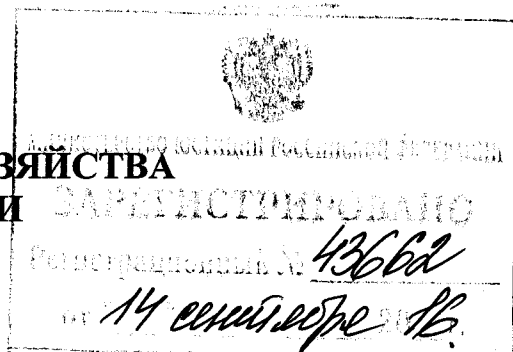 МИНИСТЕРСТВО ЮСТИЦИИ РОССИЙСКОЙ ФЕДЕРАЦИИ
ЗЯЙСТВА
И
ЗАРЕГИСТРИРОВАНО
Регистрационный № 43662
от 14 сентября 2016.